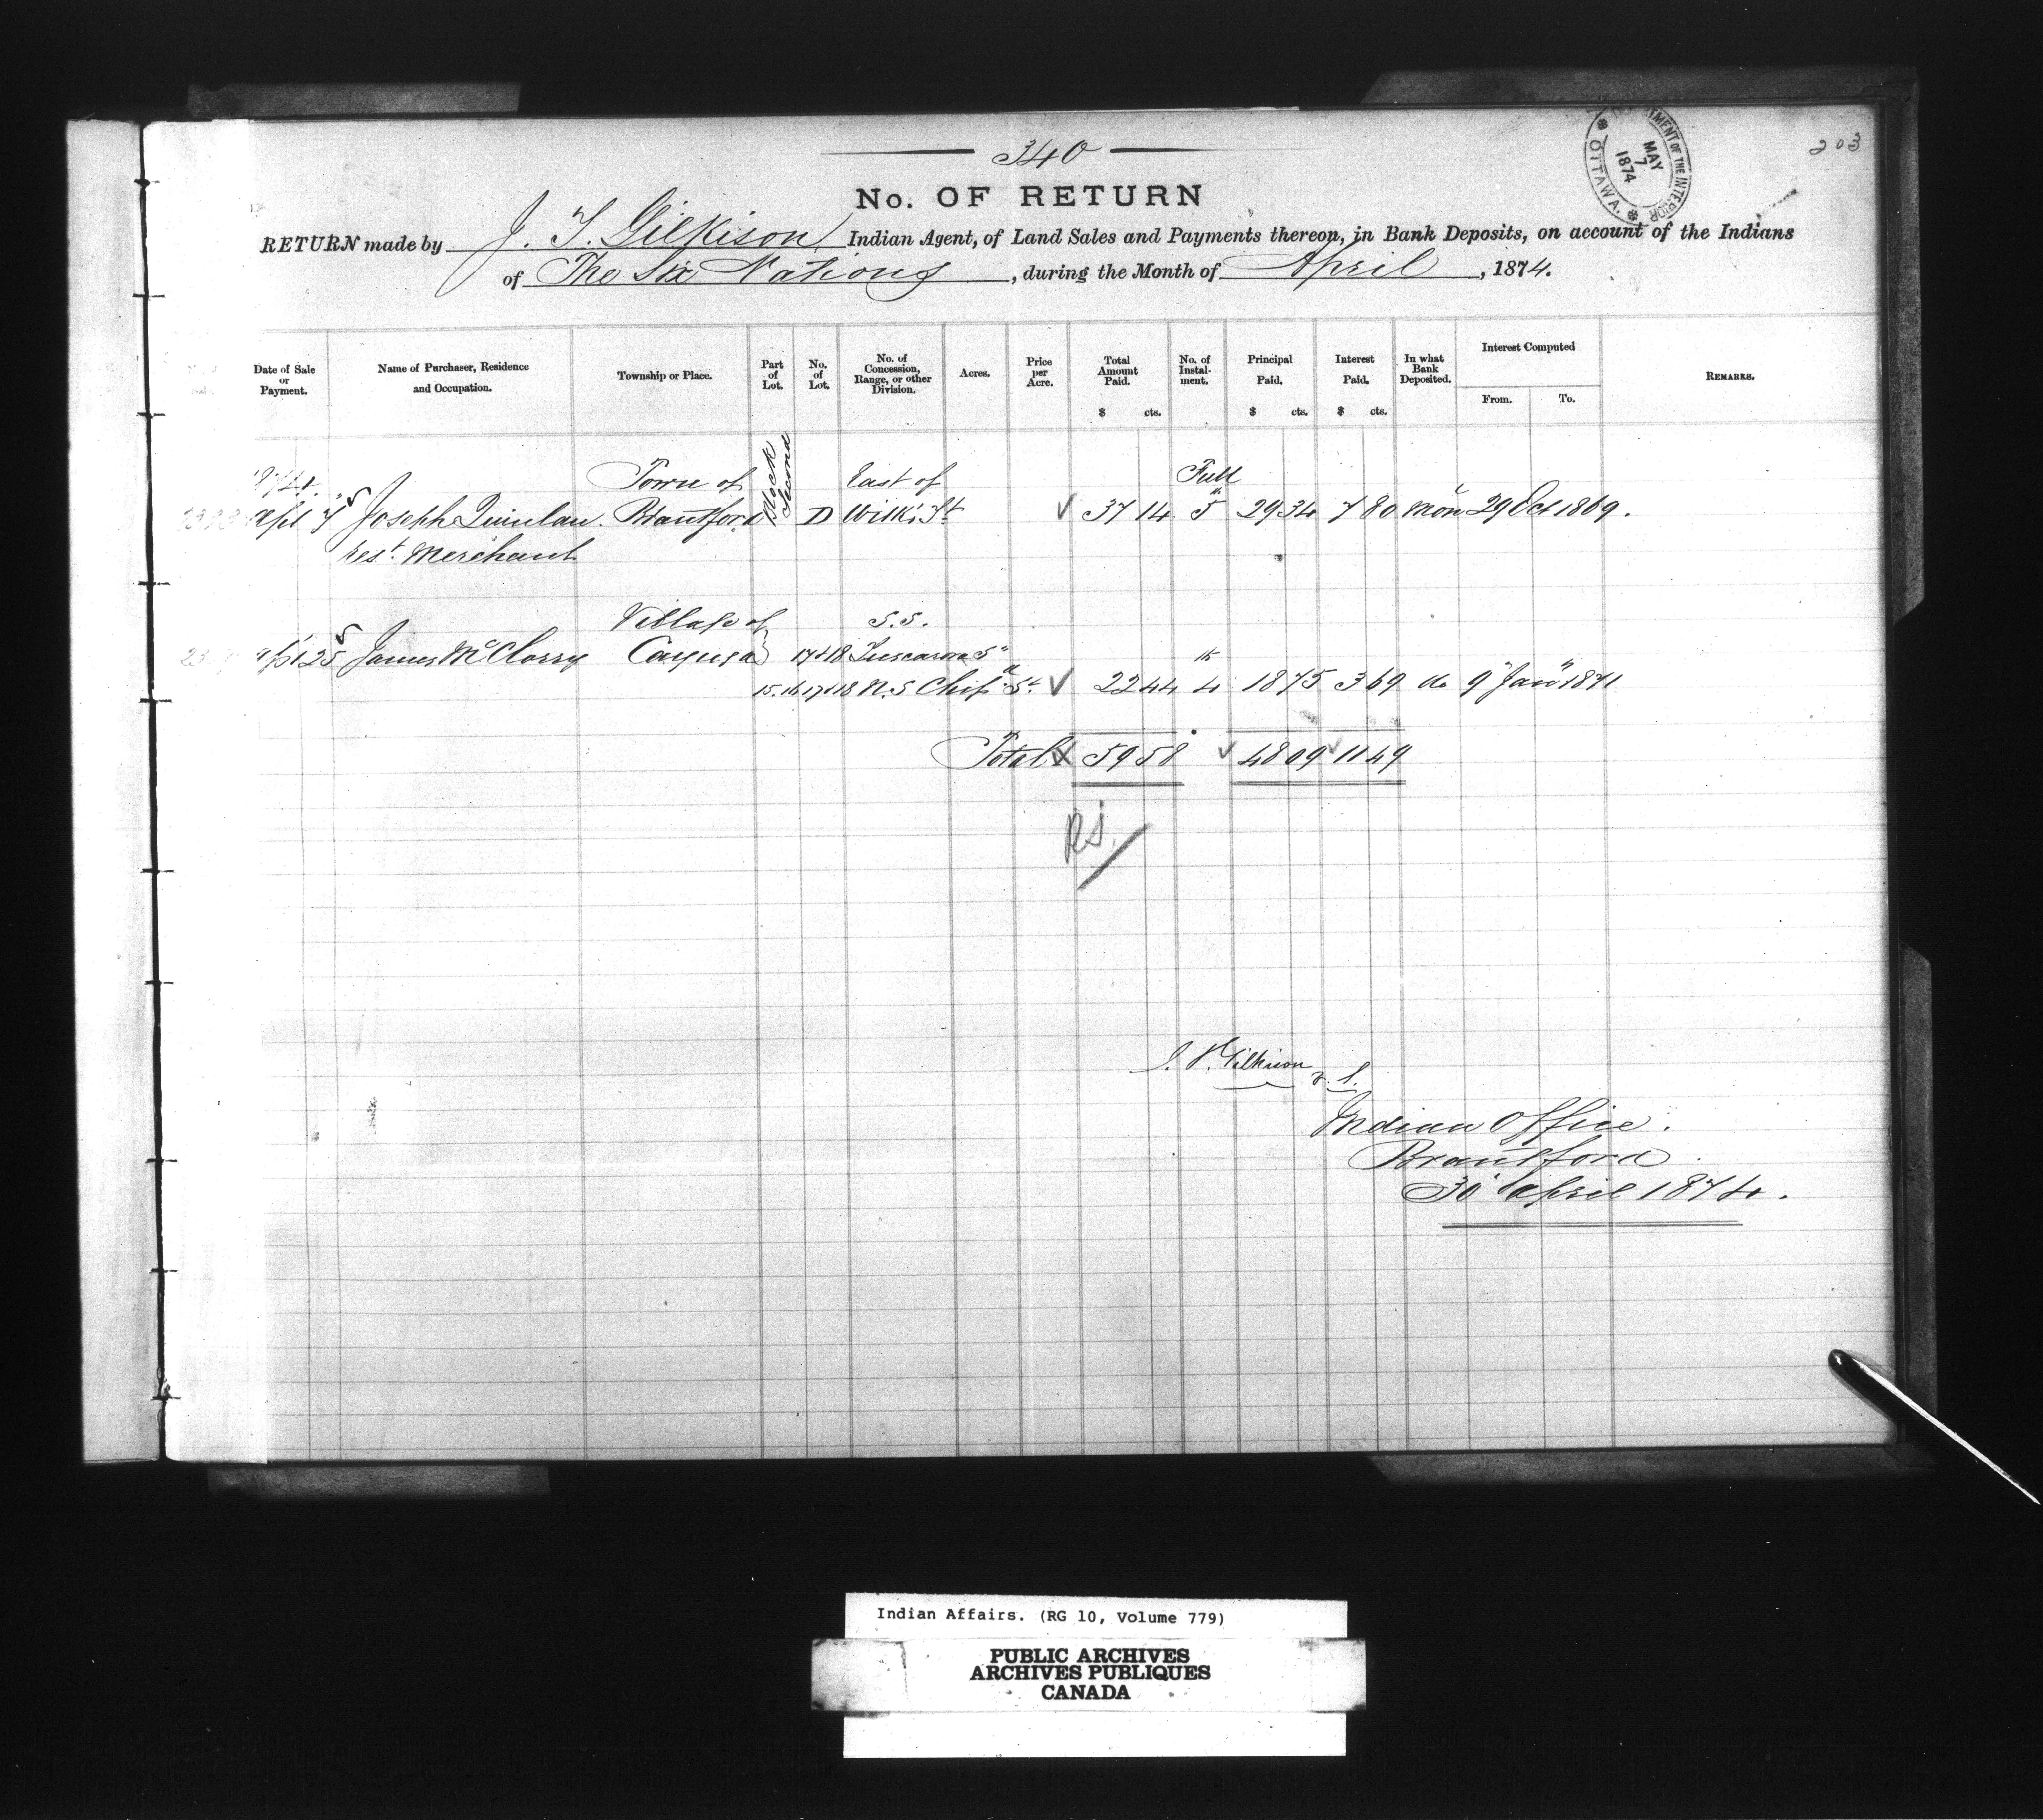 340
203
DEPARTMENT OF THE INTERIOR
MAY
7
1874
OTTAWA.
No. OF RETURN
RETURN made by J. T. Gilkison Indian Agent, of Land Sales and Payments thereon, in Bank Deposits, on account of the Indians
of The Six Nations, during the Month of April, 1874.
Date of Sale or Payment.
Name of Purchaser, Residence and Occupation.
Township or Place.
Part of Lot.
No. of Lot.
No. of Concession, Range, or other Division.
Acres.
Price per Acre.
Total Amount Paid. $ cts.
No. of Instalment.
Principal Paid. $ cts.
Interest Paid. $ cts.
In what Bank Deposited.
Interest Computed
From. To.
REMARKS.
1874. Town of Block Second East of Full
Apl 7 Joseph Quinlan. Brantford D Wilks St 37 14 5th 29 34 7 80 Mon 29 Oct 1869.
rest. Merchant
Village of S.S.
25 James McClory Cayuga 17&18 Tuscarora St
15.16.17&18 N.S Chip St 22 44 4th 18 75 3 69 do 9th Jany 1871
Total 59 58 48 09 11 49
J. T. Gilkison
Indian Office.
Brantford.
30 April 1874.
Indian Affairs. (RG 10, Volume 779)
PUBLIC ARCHIVES
ARCHIVES PUBLIQUES
CANADA